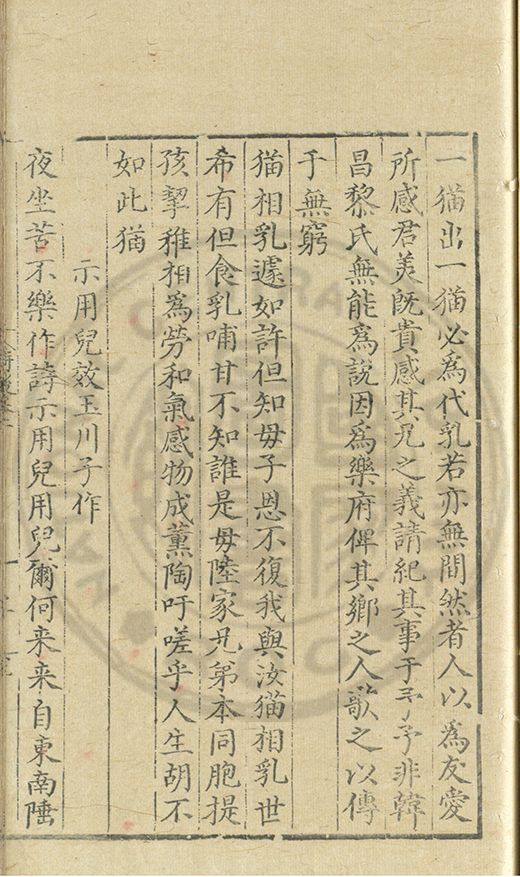 一猫出一猫必為代乳若亦無間然者人以為友愛
所感君美既貴感其兄之義請紀其事于予予非韓
昌黎氏無能為說因為樂府俾其鄉之人歌之以傳
于無窮
猫相乳遽如許但知母子恩不復我與汝猫相乳世
希有但食乳哺甘不知誰是母陸家兄弟本同胞提
孩挈稚相為勞和氣感物成薰陶吁嗟乎人生胡不
如此猶
示用兒效玉川子作
夜坐苦不樂作詩示用兒用兒爾何来来自東南陲